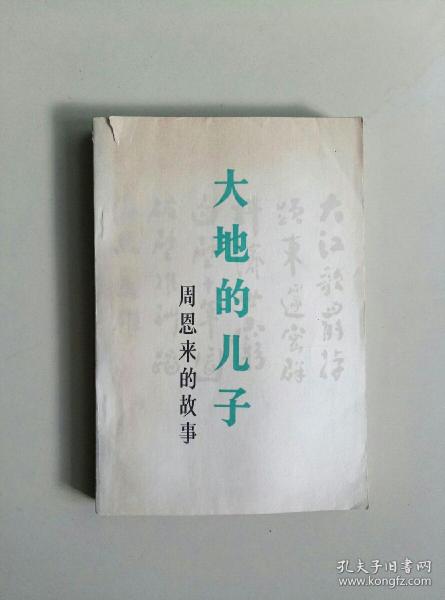 大江歌罷掉
頭東邃密群
大地的儿子
周恩来的故事
孔夫子旧书网
www.kongfz.com